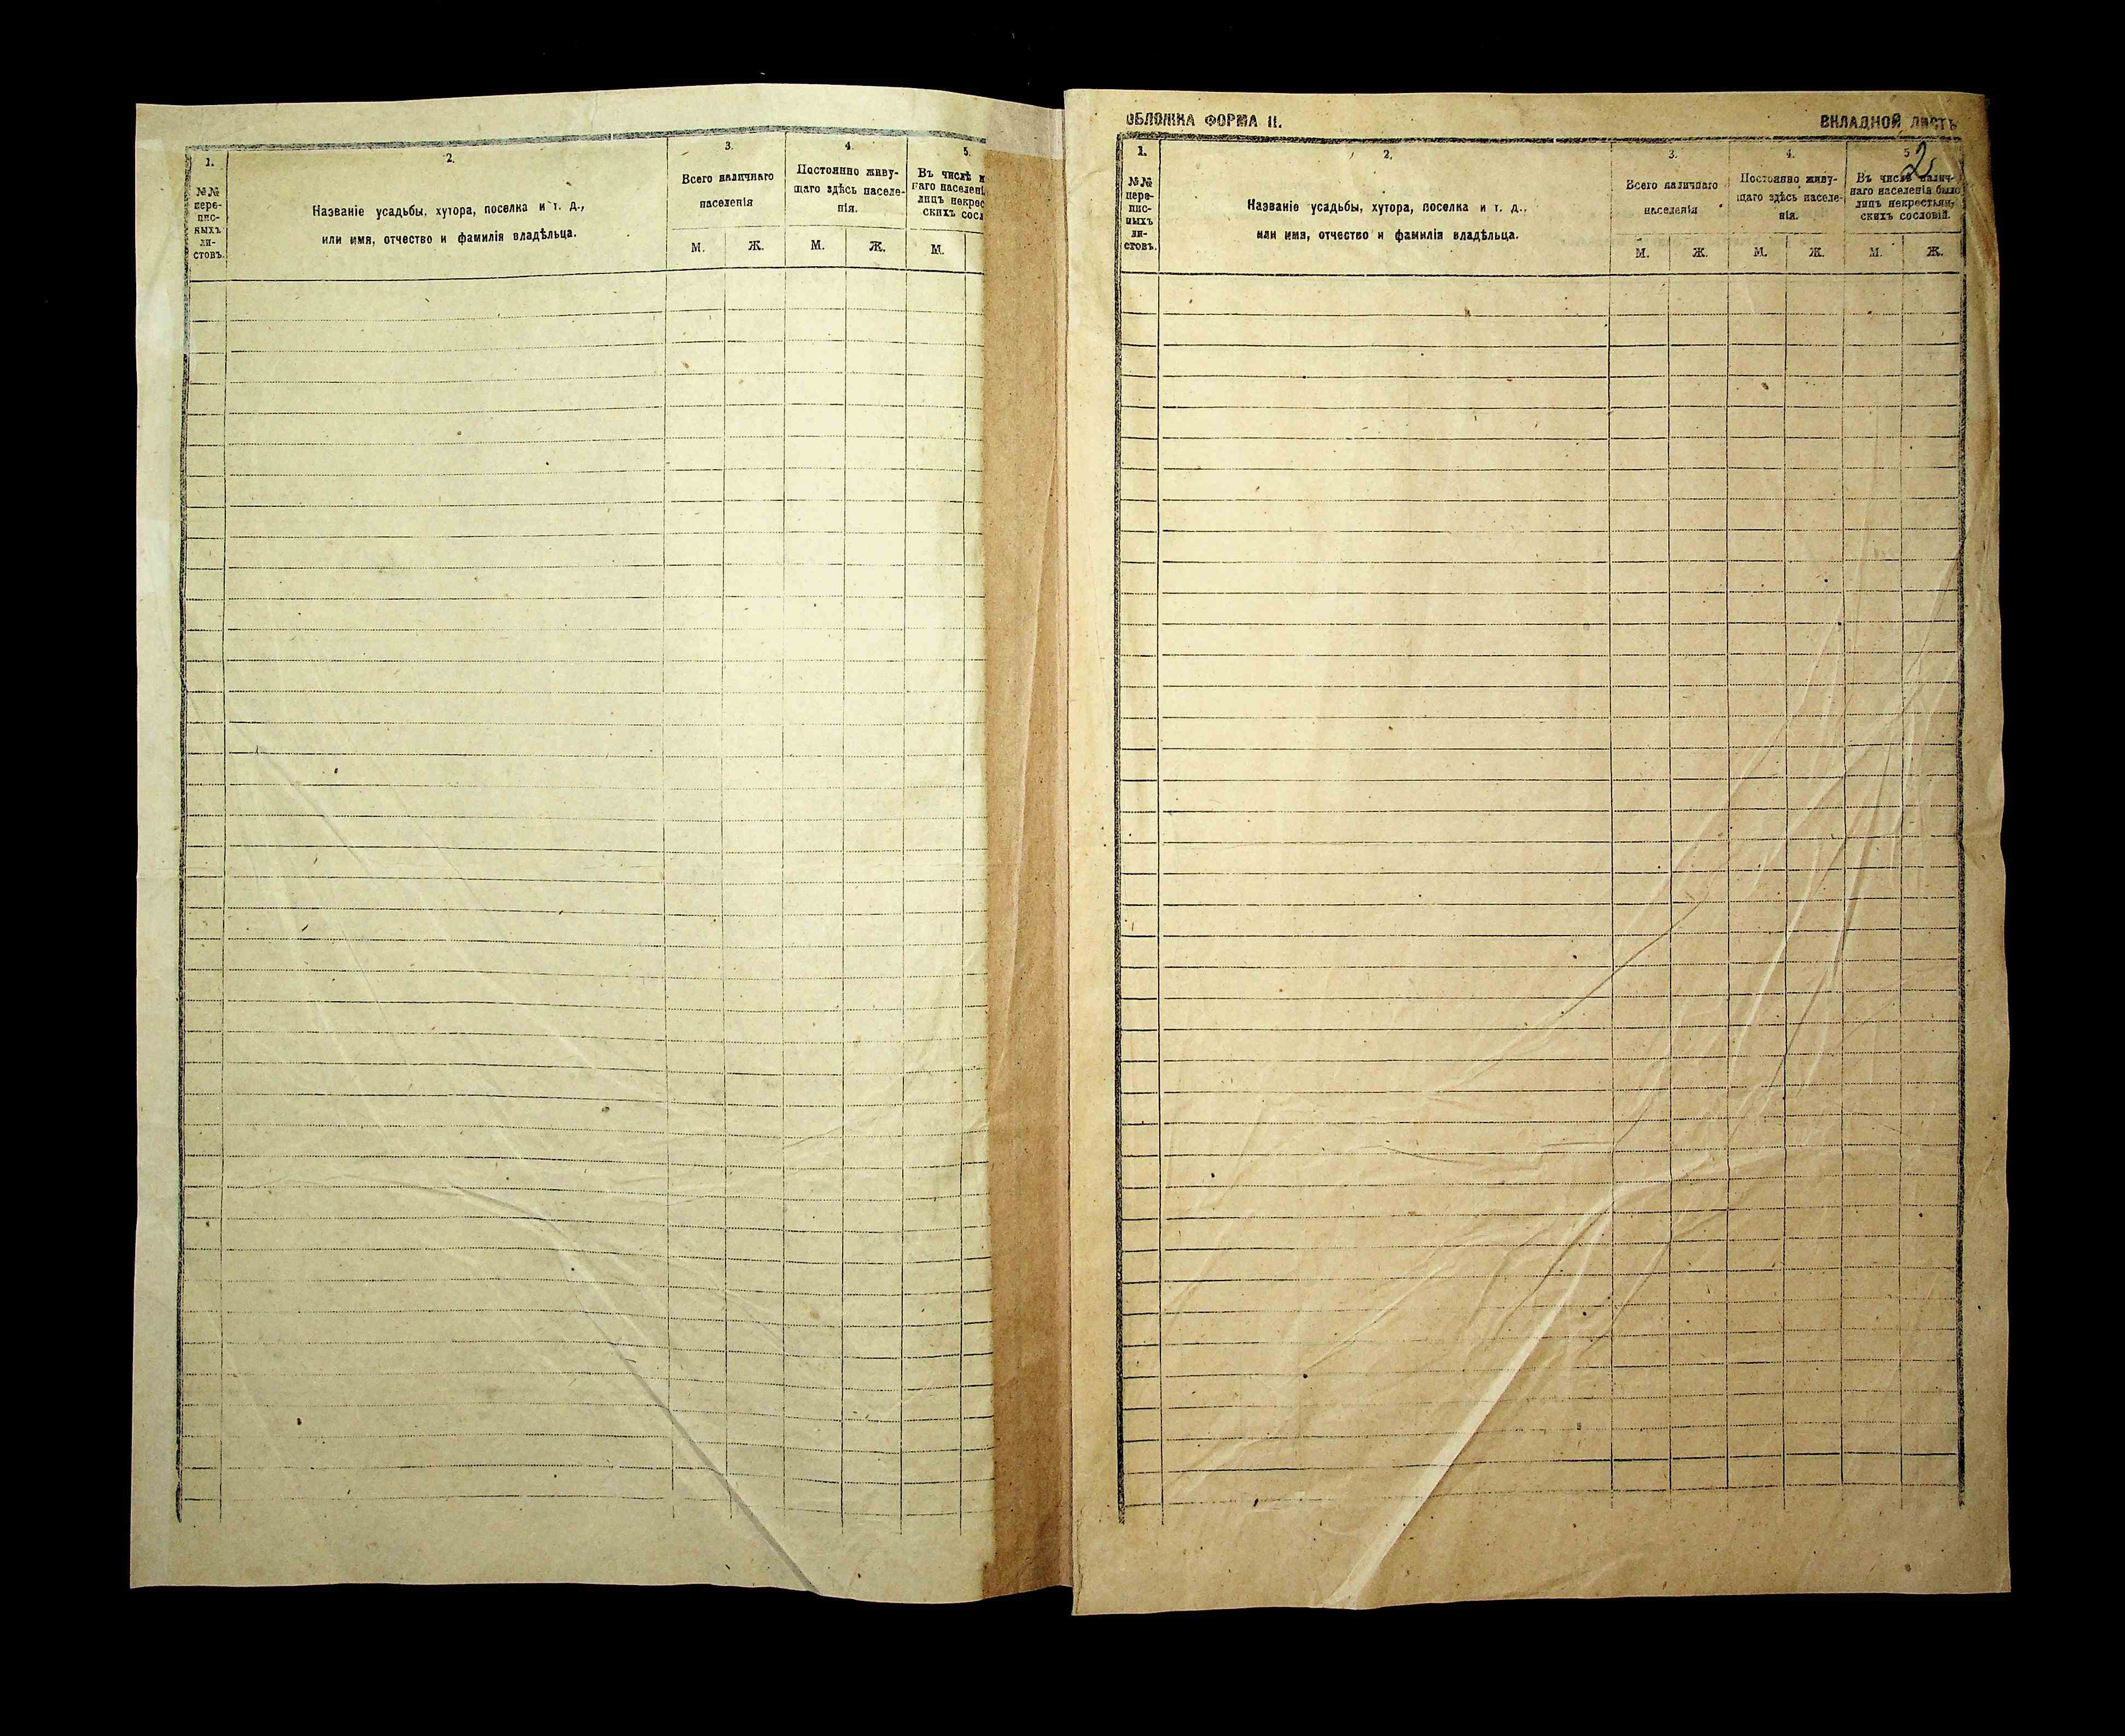 1.
№№
пере-
пис-
ныхъ
ли-
стовъ.
2.
Названіе усадьбы, хутора, поселка и т. д.,
или имя, отчество и фамилія владѣльца.
3.
Всего наличнаго
населенія
М. Ж.
4.
Постоянно живу-
щаго здѣсь населе-
нія.
М. Ж.
5.
Въ числѣ
наго населені
лицъ некрес
скихъ сосл
М.
ОБЛОЖКА ФОРМА II. ВКЛАДНОЙ ЛИСТЪ
2
1.
№№
пере-
пис-
ныхъ
ли-
стовъ.
2.
Названіе усадьбы, хутора, поселка и т. д.,
или имя, отчество и фамилія владѣльца.
3.
Всего наличнаго
населенія
М. Ж.
4.
Постоянно живу-
щаго здѣсь населе-
нія.
М. Ж.
5
Въ числѣ налич-
наго населенія было
лицъ некрестьян-
скихъ сословій.
М. Ж.